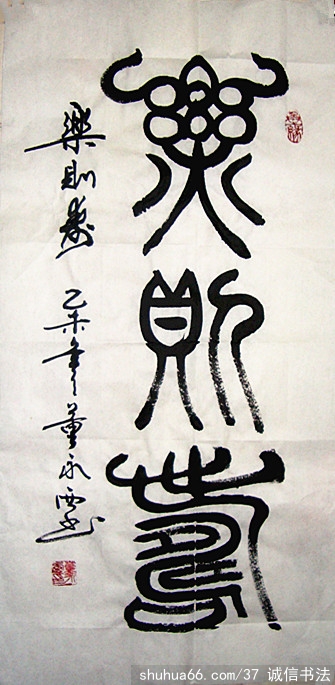 樂則壽
樂則壽 乙未年 董永西
shuhua66.com/37 诚信书法